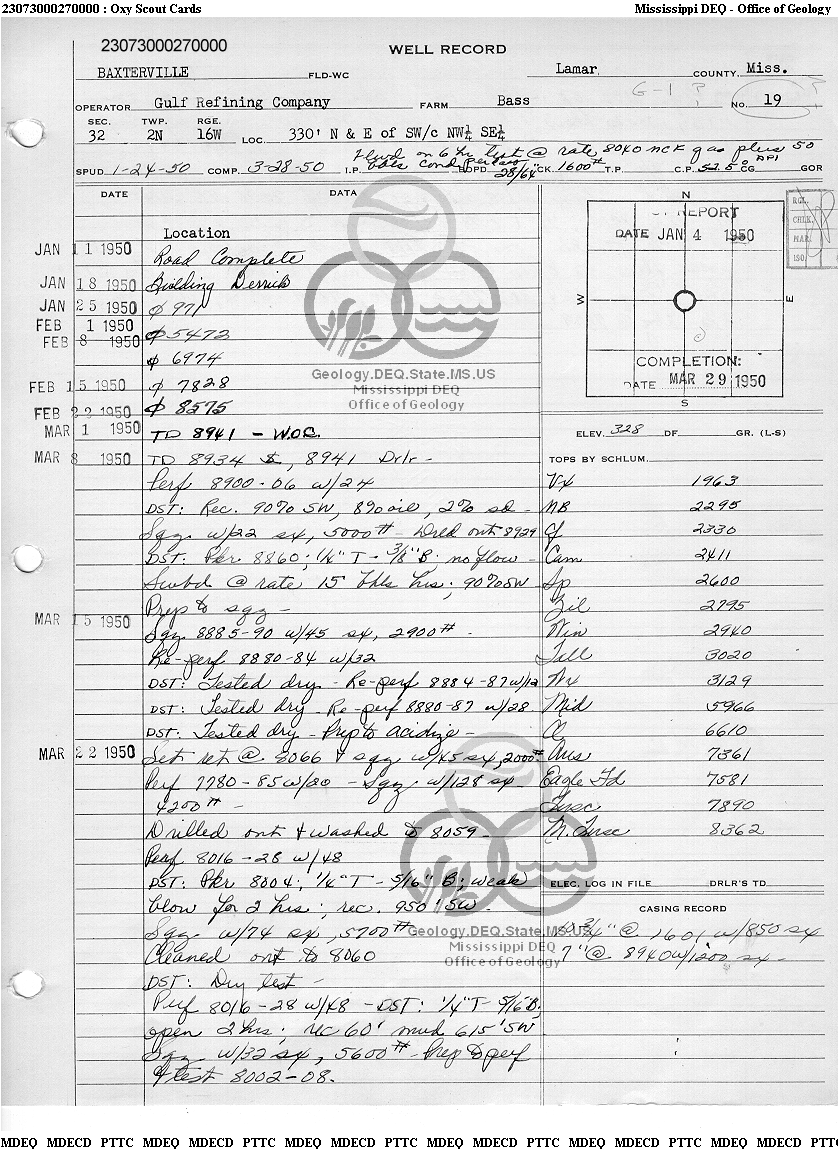 23073000270000 : Oxy Scout Cards Mississippi DEQ - Office of Geology
23073000270000
WELL RECORD
BAXTERVILLE FLD-WC Lamar COUNTY, Miss.
G-1 ?
OPERATOR Gulf Refining Company FARM Bass NO. 19
SEC. TWP. RGE.
32 2N 16W LOC. 330' N & E of SW/c NW¼ SE¼
Flwd on 6 hr test @ rate 8040 MCF gas plus 50
SPUD 1-24-50 COMP. 3-28-50 I.P. bbls cond per BOPD 28/64" CK. 1600# T.P. C.P. 52.5° API CG GOR
DATE DATA
N
W
E
S
REPORT
DATE JAN 4 1950
COMPLETION:
DATE MAR 29 1950
RGL.
CHLK.
MAR.
ISO.
Location
JAN 11 1950 Road Complete
JAN 18 1950 Building Derrick
JAN 25 1950 φ 971
FEB 1 1950
FEB 8 1950 φ 5472
φ 6974
FEB 15 1950 φ 7828
FEB 22 1950 φ 8575
MAR 1 1950 TD 8941 - W.O.C.
MAR 8 1950 TD 8934 S, 8941 Drlr -
Perf 8900-06 w/24
DST: Rec. 90% SW, 8% oil, 2% sd -
Sqz w/22 sx, 5000# - Drld out 8929
DST: Pkr 8860; ¼" T - 3/8" B; no flow -
Swbd @ rate 15 bbls hrs; 90% SW
Prep to sqz -
MAR 15 1950 Sqz 8885-90 w/45 sx, 2900# -
Re-perf 8880-84 w/32
DST: Tested dry - Re-perf 8884-87 w/12
DST: Tested dry - Re-perf 8880-87 w/28
DST: Tested dry - Prep to acidize -
MAR 22 1950 Set ret @ 8066 & sqz w/45 sx, 2000#
Perf 7780-85 w/20 - Sqz w/128 sx -
4200# -
Drilled out & washed to 8059 -
Perf 8016-28 w/48
DST: Pkr 8004; ¼" T - 5/16" B; weak
blow for 2 hrs; rec. 950' SW -
Sqz w/74 sx, 5700#
Cleaned out to 8060
DST: Dry test -
Perf 8016-28 w/48 - DST: ¼" T - 5/16" B;
open 2 hrs; rec 60' mud 615' SW
Sqz w/32 sx, 5600# - Prep to perf
& test 8002-08.
ELEV. 328 DF GR. (L-S)
TOPS BY SCHLUM.
Vx 1963
NB 2295
Gf 2330
Cam 2411
Sp 2600
Zil 2795
Win 2940
Tall 3020
Wx 3129
Mid 5966
Cl 6610
Aus 7361
Eagle Fd 7581
Tusc 7890
M. Tusc 8362
ELEC. LOG IN FILE DRLR'S TD
CASING RECORD
10 3/4" @ 1601 w/850 sx
7" @ 8940 w/1200 sx -
Geology.DEQ.State.MS.US
Mississippi DEQ
Office of Geology
Geology.DEQ.State.MS.US
Mississippi DEQ
Office of Geology
MDEQ MDECD PTTC MDEQ MDECD PTTC MDEQ MDECD PTTC MDEQ MDECD PTTC MDEQ MDECD PTTC MDEQ MDECD PTTC